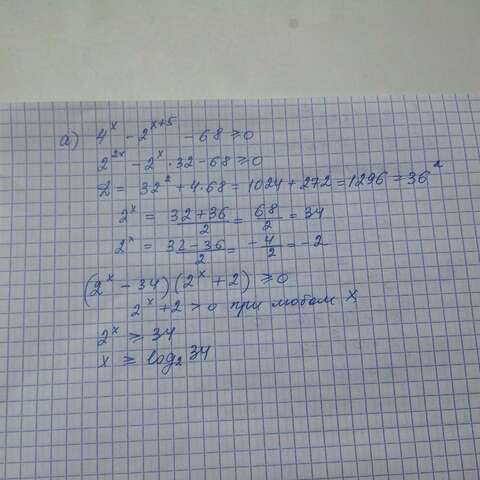 а) 4^x - 2^(x+5) - 68 ≥ 0
2^(2x) - 2^x · 32 - 68 ≥ 0
D = 32² + 4·68 = 1024 + 272 = 1296 = 36²
2^x = (32+36)/2 = 68/2 = 34
2^x = (32-36)/2 = -4/2 = -2
(2^x - 34)(2^x + 2) ≥ 0
2^x + 2 > 0 при любом x
2^x ≥ 34
x ≥ log₂ 34